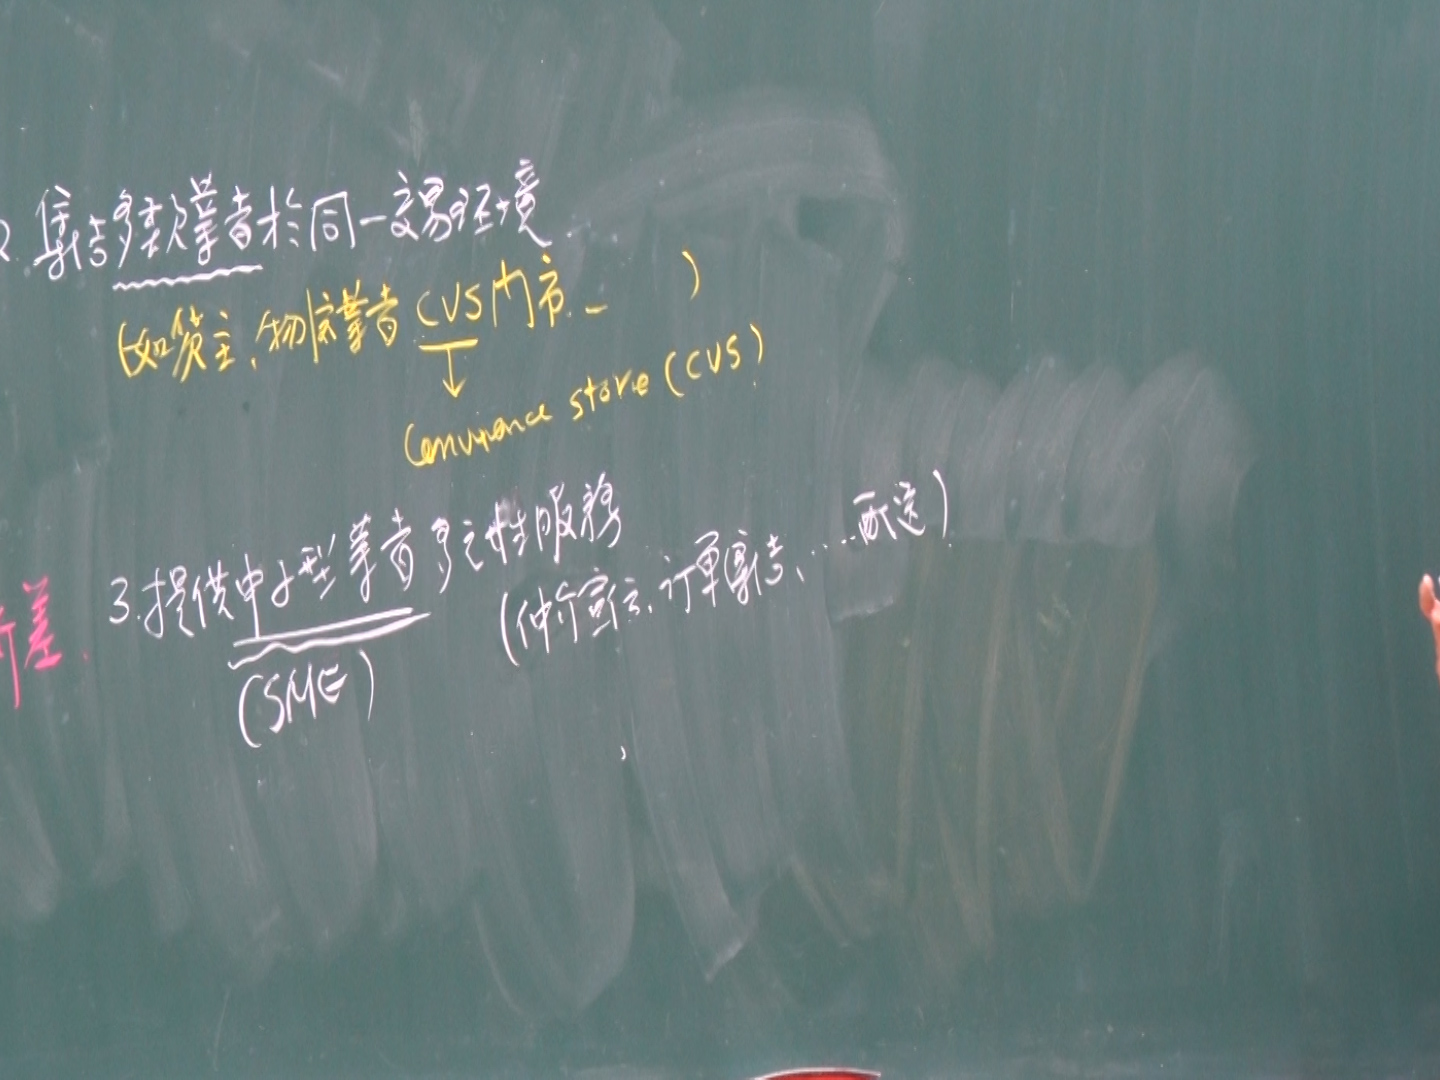 2. 集結多樣業者於同一交易环境
(如貨主、物流業者 CVS门市、_ )
↓
Convenience store (CVS)
3.提供中小型業者多元性服務
(仲介宣传、订單集結、....配送)
(SME)
差.